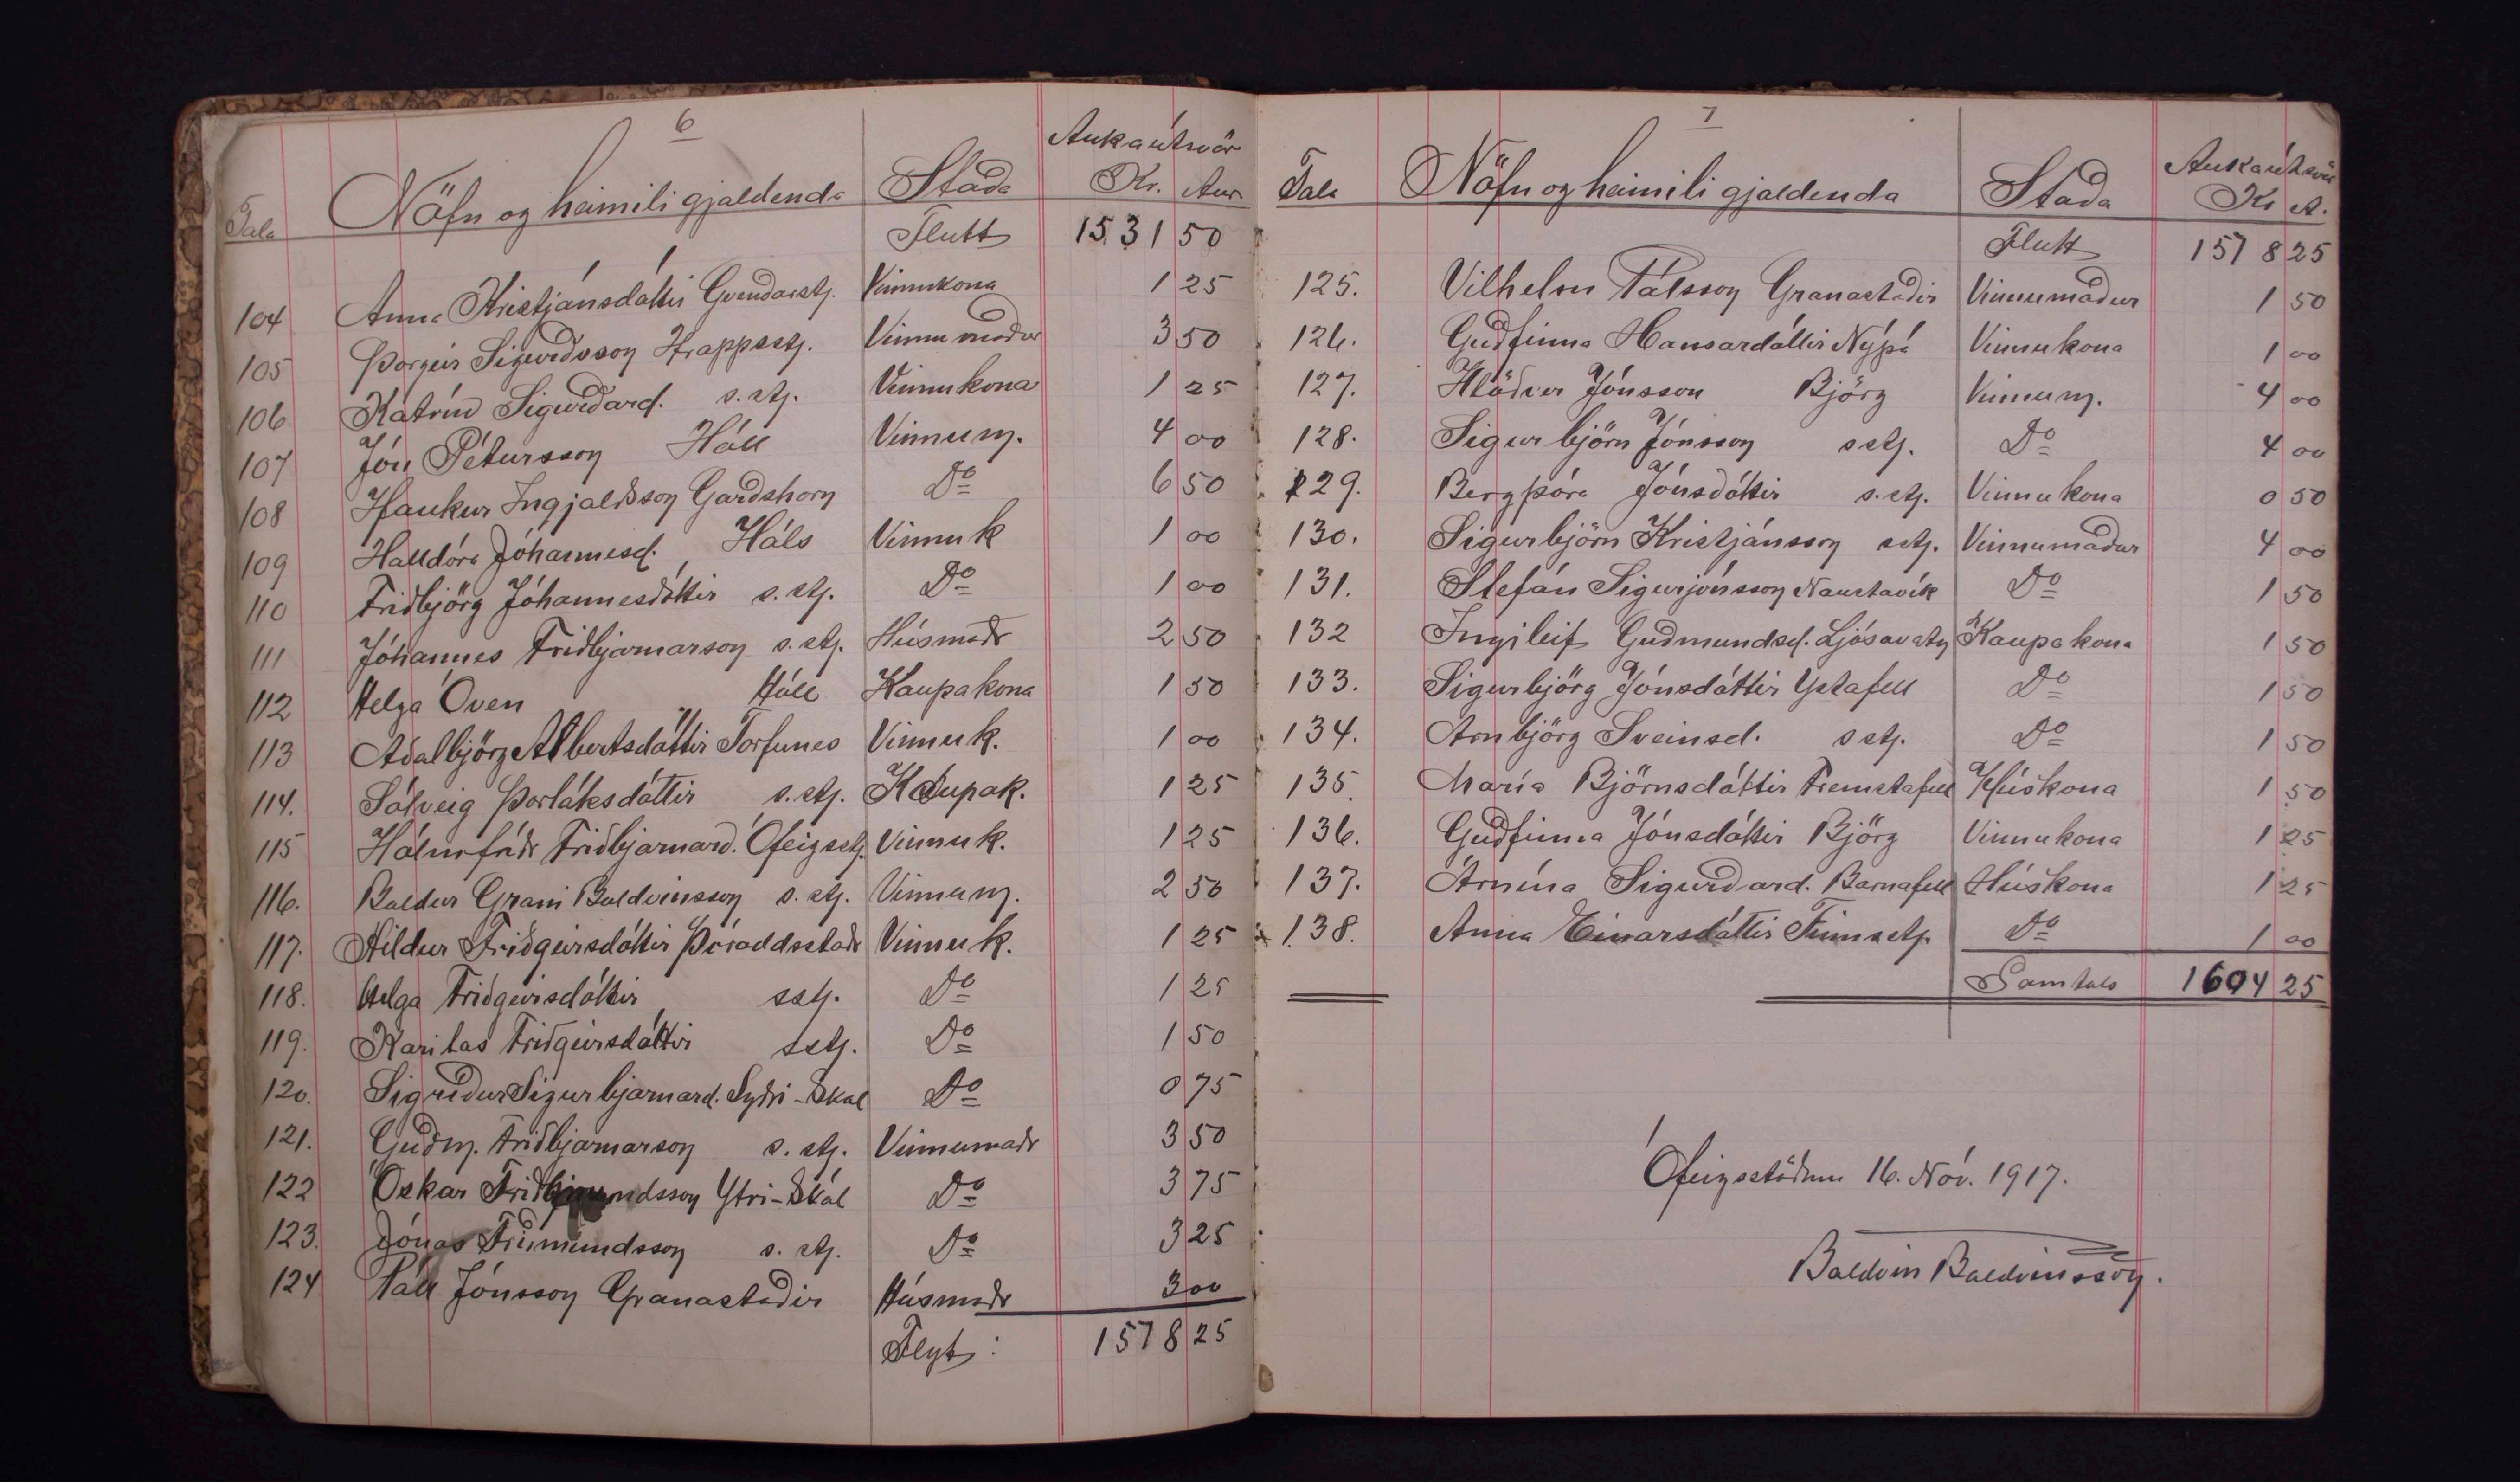 6
Aukaútsvör
Tala Nöfn og heimili gjaldenda Staða Kr. Aur
Flutt 1531 50
104 Anna Kristjánsdóttir Gvendarstj. Vinnukona 1 25
105 Þorgeir Sigurðsson Hrappsstj. Vinnumaður 3 50
106 Katrín Sigurðard. s. stj. Vinnukona 1 25
107 Jón Pétursson Háls Vinnum. 4 00
108 Haukur Ingjaldsson Garðshorn Do 6 50
109 Halldóra Jóhannesd. Háls Vinnuk 1 00
110 Friðbjörg Jóhannesdóttir s. stj. Do 1 00
111 Jóhannes Friðbjarnarson s. stj. Húsmaðr 2 50
112 Helga Oven Hóll Kaupakona 1 50
113 Aðalbjörg Albertsdóttir Torfunes Vinnuk. 1 00
114. Sólveig Þorláksdóttir s. stj. Kaupak. 1 25
115 Hólmfríðr Friðbjarnard. Ófeigsstj. Vinnuk. 1 25
116. Baldur Grani Baldvinsson s. stj. Vinnum. 2 50
117. Hildur Friðgeirsdóttir Þóroddsstaðr Vinnuk. 1 25
118. Helga Friðgeirsdóttir s stj. Do 1 25
119. Karitas Friðgeirsdóttir s stj. Do 1 50
120. Sigríður Sigurbjarnard. Syðri-Skál Do 0 75
121. Guðm. Friðbjarnarson s. stj. Vinnumaðr 3 50
122 Óskar Friðmundsson Ytri-Skál Do 3 75
123. Jónas Friðmundsson s. stj. Do 3 25
124 Páll Jónsson Granastaðir Húsmaðr 3 00
Flyt: 1578 25
7
Aukaútsvör
Tala Nöfn og heimili gjaldenda Staða Kr A.
Flutt 1578 25
125. Vilhelm Pálsson Granastaðir Vinnumaður 1 50
126. Guðfinna Hansardóttir Nýpá Vinnukona 1 00
127. Hlöðver Jónsson Björg Vinnum. 4 00
128. Sigurbjörn Jónsson s stj. Do 4 00
129. Bergþóra Jónsdóttir s. stj. Vinnukona 0 50
130. Sigurbjörn Kristjánsson s stj. Vinnumaður 4 00
131. Stefán Sigurjónsson Naustavík Do 1 50
132 Ingileif Guðmundsd. Ljósavatn Kaupakona 1 50
133. Sigurbjörg Jónsdóttir Ystafell Do 1 50
134. Arnbjörg Sveinsd. s stj. Do 1 50
135. María Björnsdóttir Fremstafell Húskona 1 50
136. Guðfinna Jónsdóttir Björg Vinnukona 1 25
137. Árnína Sigurðard. Barnafell Húskona 1 25
138. Anna Einarsdóttir Finnsstj. Do 1 00
Samtals 1604 25
Ófeigsstöðum 16. Nóv. 1917.
Baldvin Baldvinsson.